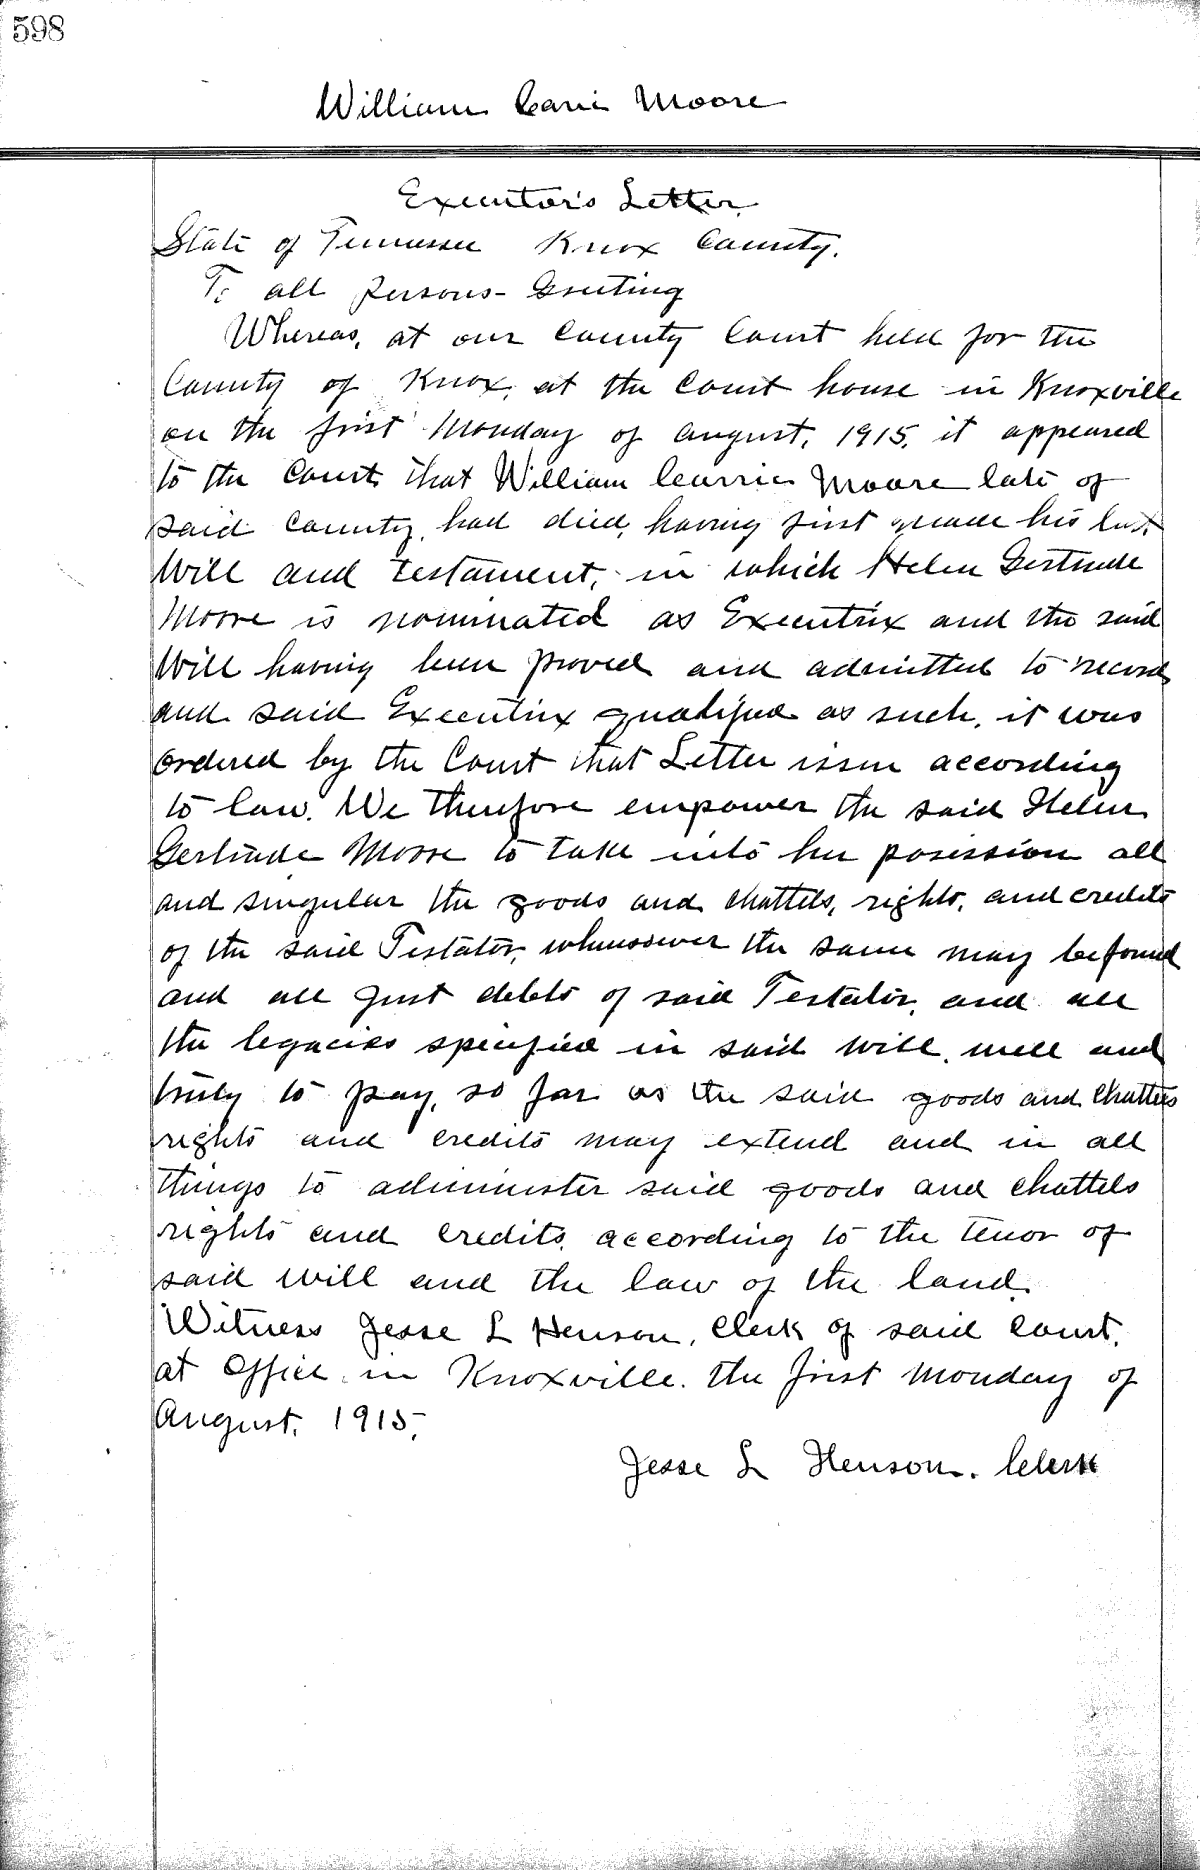 598
William Carri Moore
Executor's Letter
State of Tennessee Knox County.
To all Persons - Greeting
Whereas, at our County Court held for the
County of Knox, at the Court house in Knoxville
on the first Monday of August, 1915, it appeared
to the Court, that William Currie Moore late of
said County, had died, having first made his last
Will and testament, in which Helen Gertrude
Moore is nominated as Executrix and the said
Will having been proved and admitted to record
and said Executrix qualified as such, it was
ordered by the Court that Letter issue according
to law. We therefore empower the said Helen
Gertrude Moore to take into her posession all
and singular the goods and chattels, rights, and credits
of the said Testator, whensoever the same may be found
and all just debts of said Testator, and all
the legacies specified in said will, well and
truly to pay, so far as the said goods and Chattels
rights and credits may extend and in all
things to administer said goods and chattels
rights and credits, according to the tenor of
said will and the law of the land.
Witness Jesse L Henson, Clerk of said Court,
at Office in Knoxville. the first Monday of
August, 1915,
Jesse L Henson. Clerk